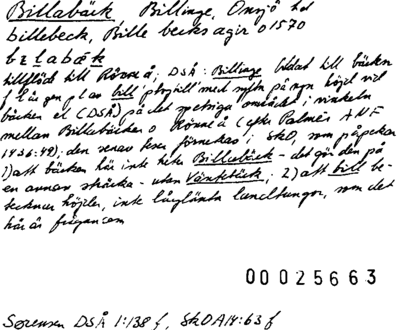 Billabäck, Billinge, Onsjö hd
billebeck, Bille becks agir o 1570
bɛlabæk
tillflöde till Rönne å; DSÅ: Billinge bildat till bäckn
f lågn pl av bill plogbill med syftn på ngn höjd vid
bäcken el (DSÅ) på det spetsiga området i vinkeln
mellan Billebäcken o Rönne å (efter Palmér ANF
1936:49); den senare teser förnekas i SkO, som påpekar
1) att bäcken här inte hete Billebäck - det gör den på
en annan sträcka - utan Vänkebäck; 2) att bill be-
tecknar höjder, inte låglänta landtungor, som det
här är frågan om
00025663
Sørensen DSÅ 1:138 f, SkO A14:63 f